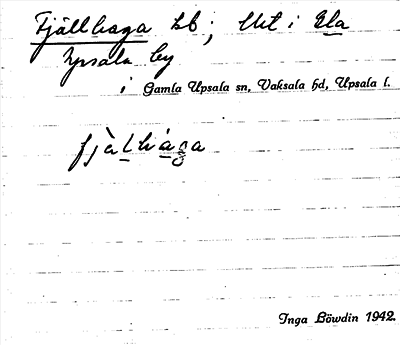 Fjällhaga lb; Utt i Gla
Upsala by
i Gamla Upsala sn, Vaksala hd, Upsala l.
fjàlhága
Inga Löwdin 1942.